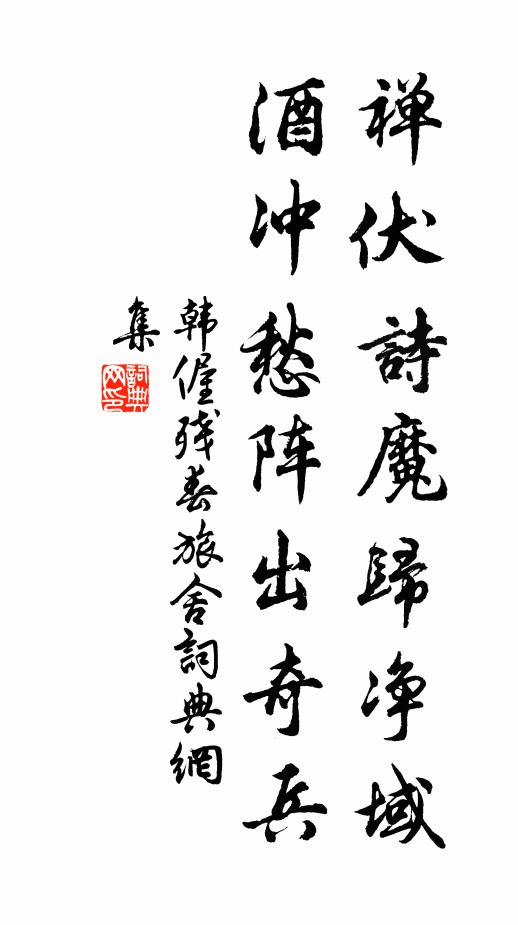 禅伏詩魔歸净域
酒冲愁阵出奇兵
韩偓残春旅舍詞典網
集
詞典网印